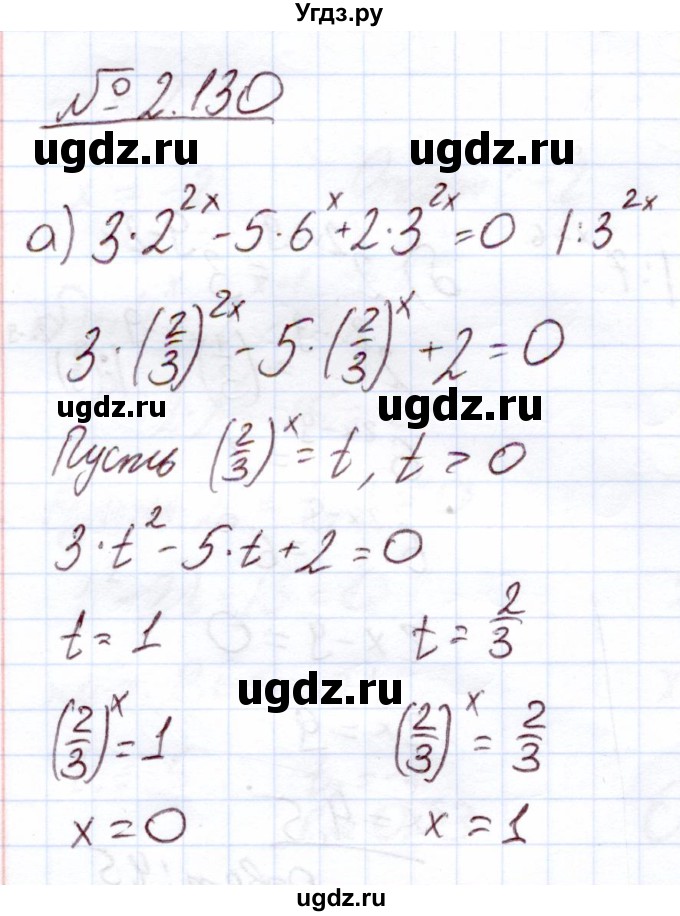 Угдз.ру
№ 2.130
ugdz.ru ugdz.ru
а) 3·2^{2x} - 5·6^x + 2·3^{2x} = 0 |:3^{2x}
3·(2/3)^{2x} - 5·(2/3)^x + 2 = 0
ugdz.ru ugdz.ru
Пусть (2/3)^x = t, t > 0
3·t^2 - 5·t + 2 = 0
t = 1 t = 2/3
ugdz.ru
(2/3)^x = 1 (2/3)^x = 2/3
x = 0 x = 1
ugdz.ru ugdz.ru